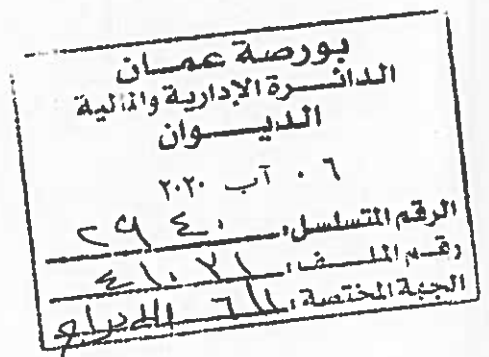 بورصة عمان
الدائرة الإدارية والمالية
الديوان
٠٦ آب ٢٠٢٠
الرقم المتسلسل: ٢٩٤٠
رقم الملف: ٤١٠٧١
الجهة المختصة: